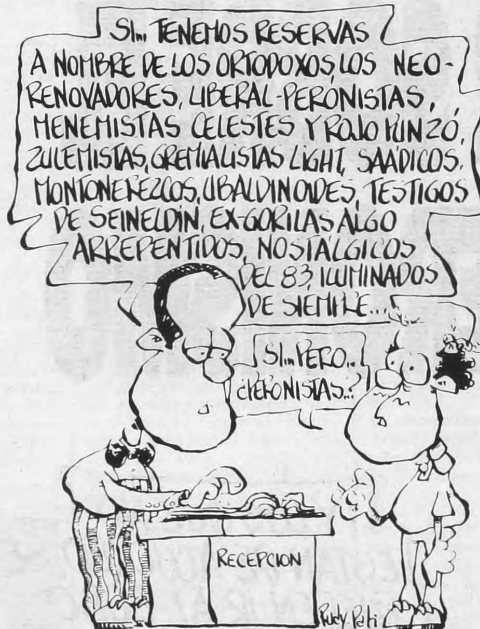 SI... TENEMOS RESERVAS
A NOMBRE DE LOS ORTODOXOS, LOS NEO-
RENOVADORES, LIBERAL-PERONISTAS,
MENEMISTAS CELESTES Y ROJO PUNZÓ,
ZULEMISTAS, GREMIALISTAS LIGHT, SAÁDICOS,
MONTONEREZCOS, UBALDINOIDES, TESTIGOS
DE SEINELDIN, EX-GORILAS ALGO
ARREPENTIDOS, NOSTÁLGICOS
DEL 83, ILUMINADOS
DE SIEMPRE...
SI... PERO...
¿PERONISTAS..?
RECEPCION
Rudy-Pati